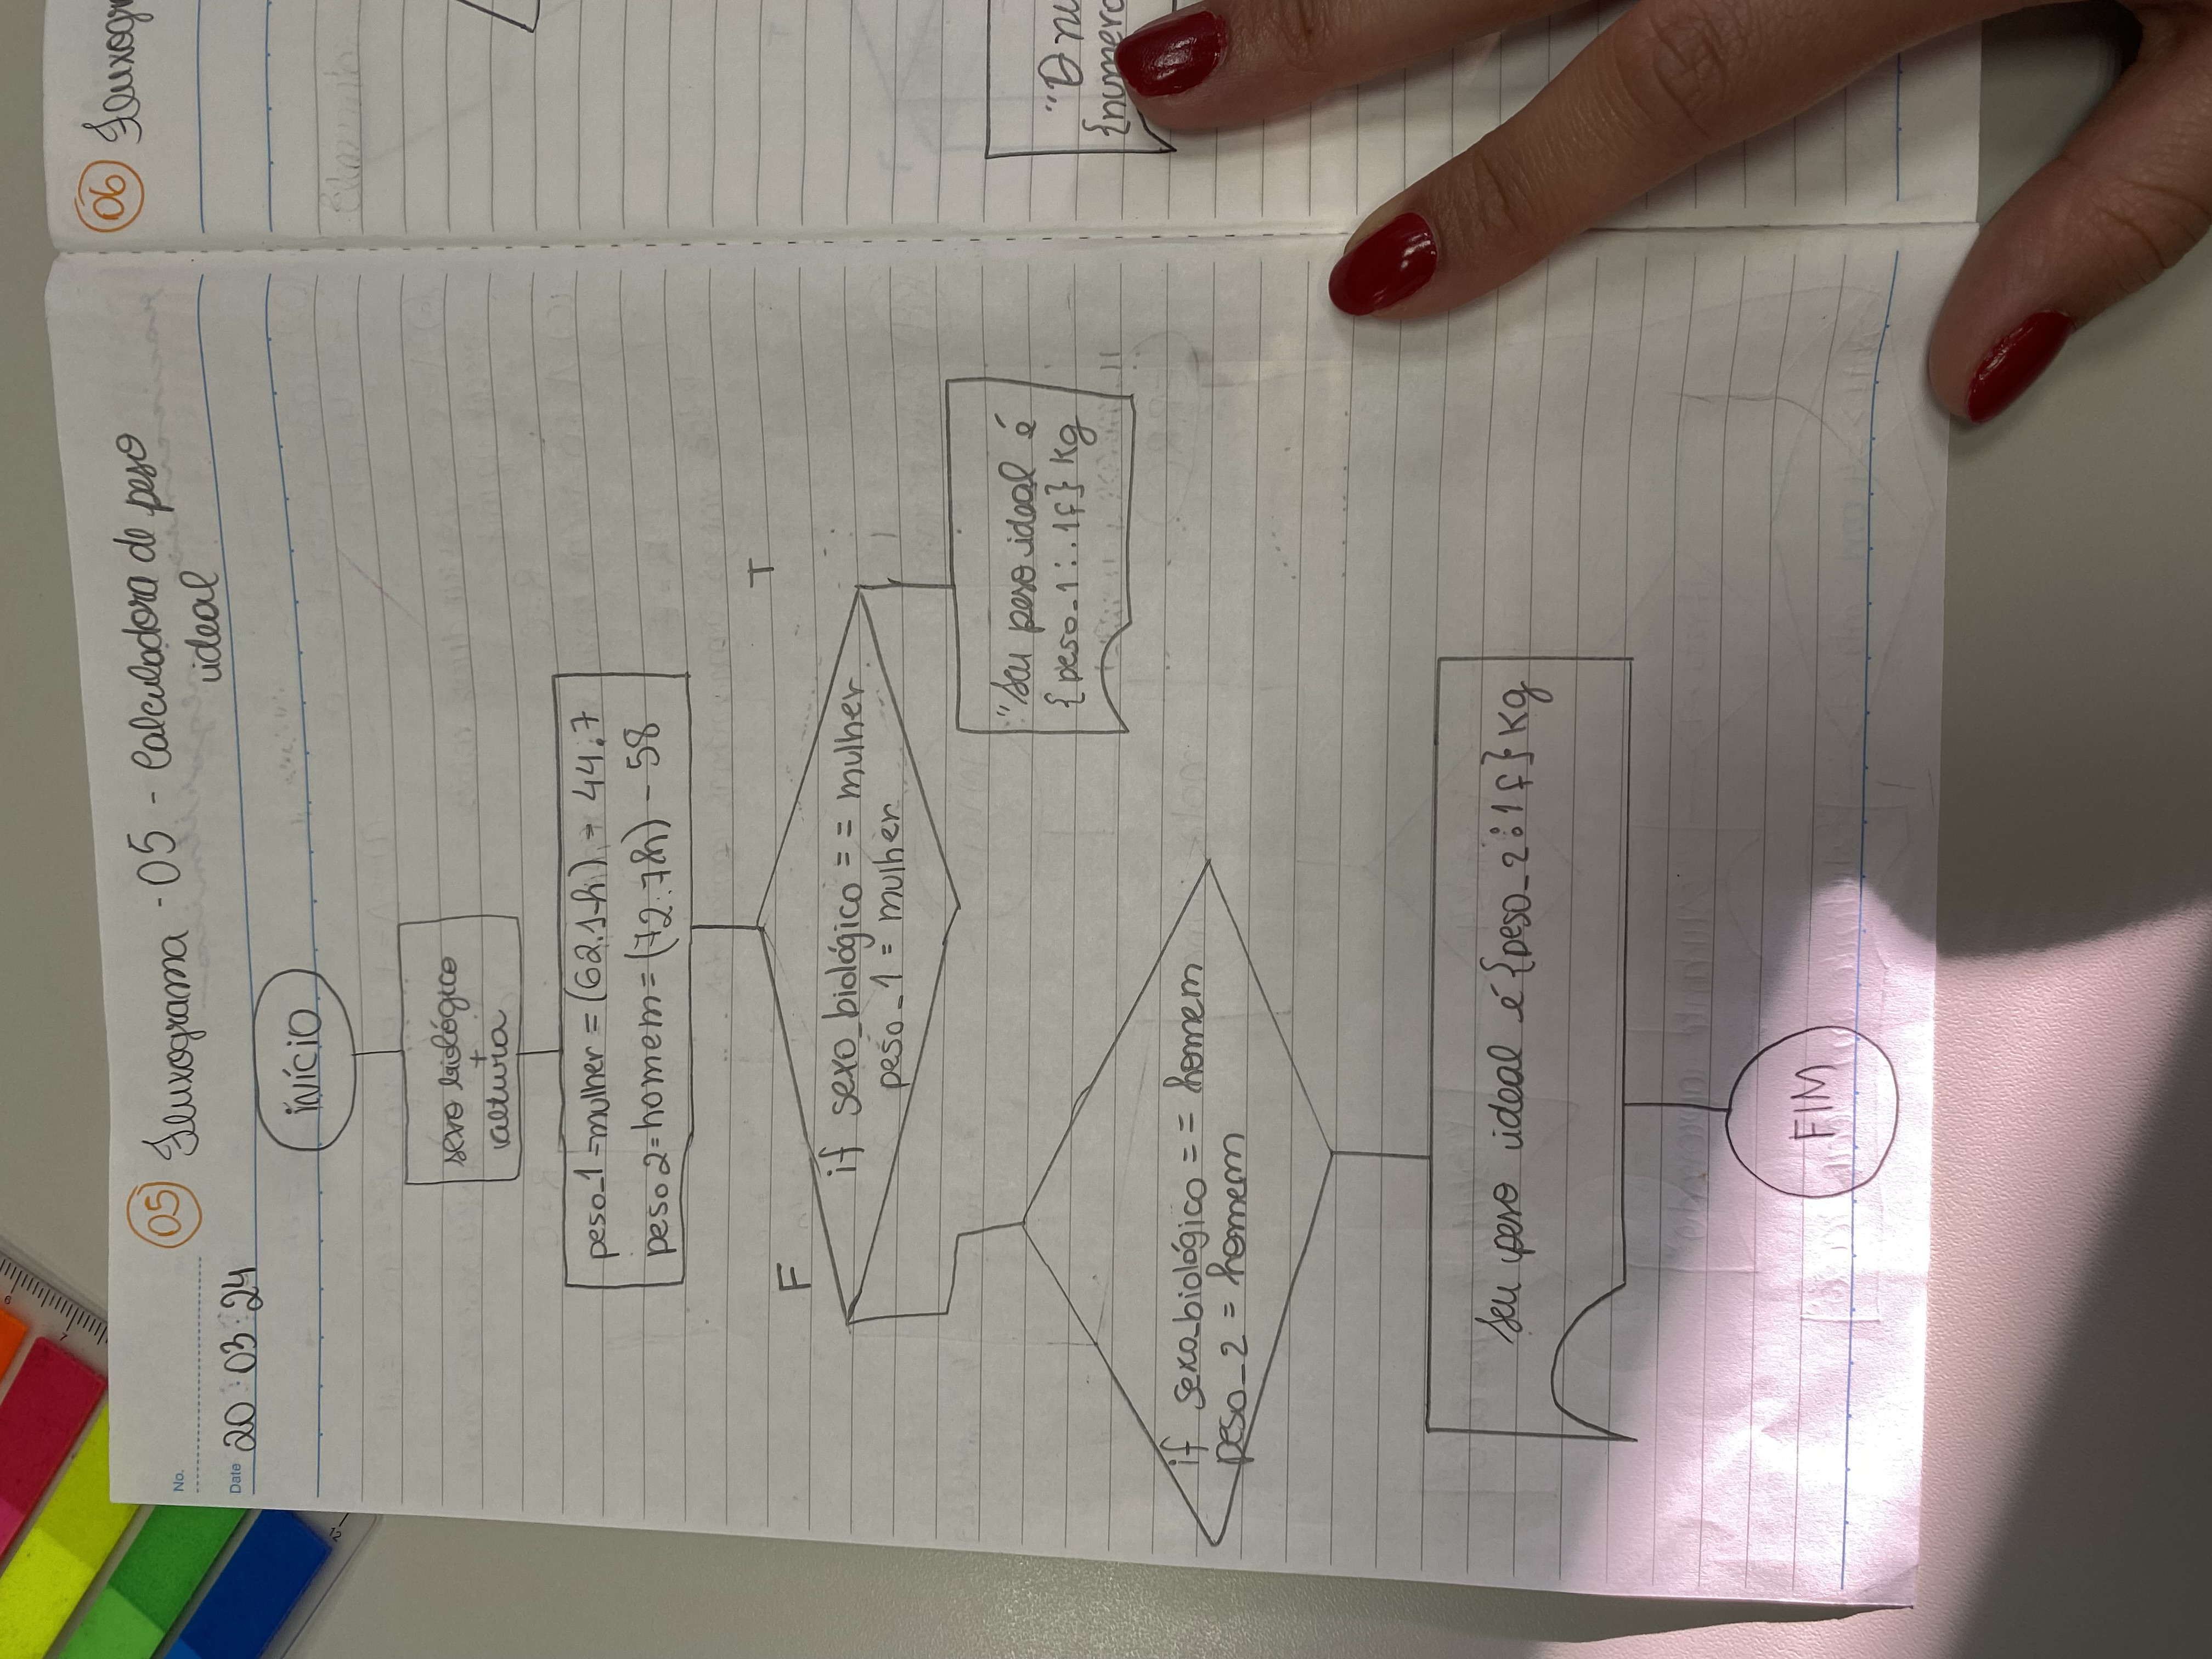 05 Fluxograma - 05 - Calculadora de peso
ideal
No.
Date 20 03 24
início
sexo biológico
+
altura
peso_1 = mulher = (62.1·h) - 44.7
peso 2 = homem = (72.7h) - 58
F
T
if sexo_biológico = = mulher
peso_1 = mulher
"Seu peso ideal é
{peso_1:.1f} Kg
if sexo_biológico = = homem
peso_2 = homem
Seu peso ideal é {peso_2:1f} Kg
FIM
06 Fluxogr
"O nu
{numero